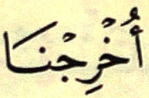 أُخْرِجْنَا